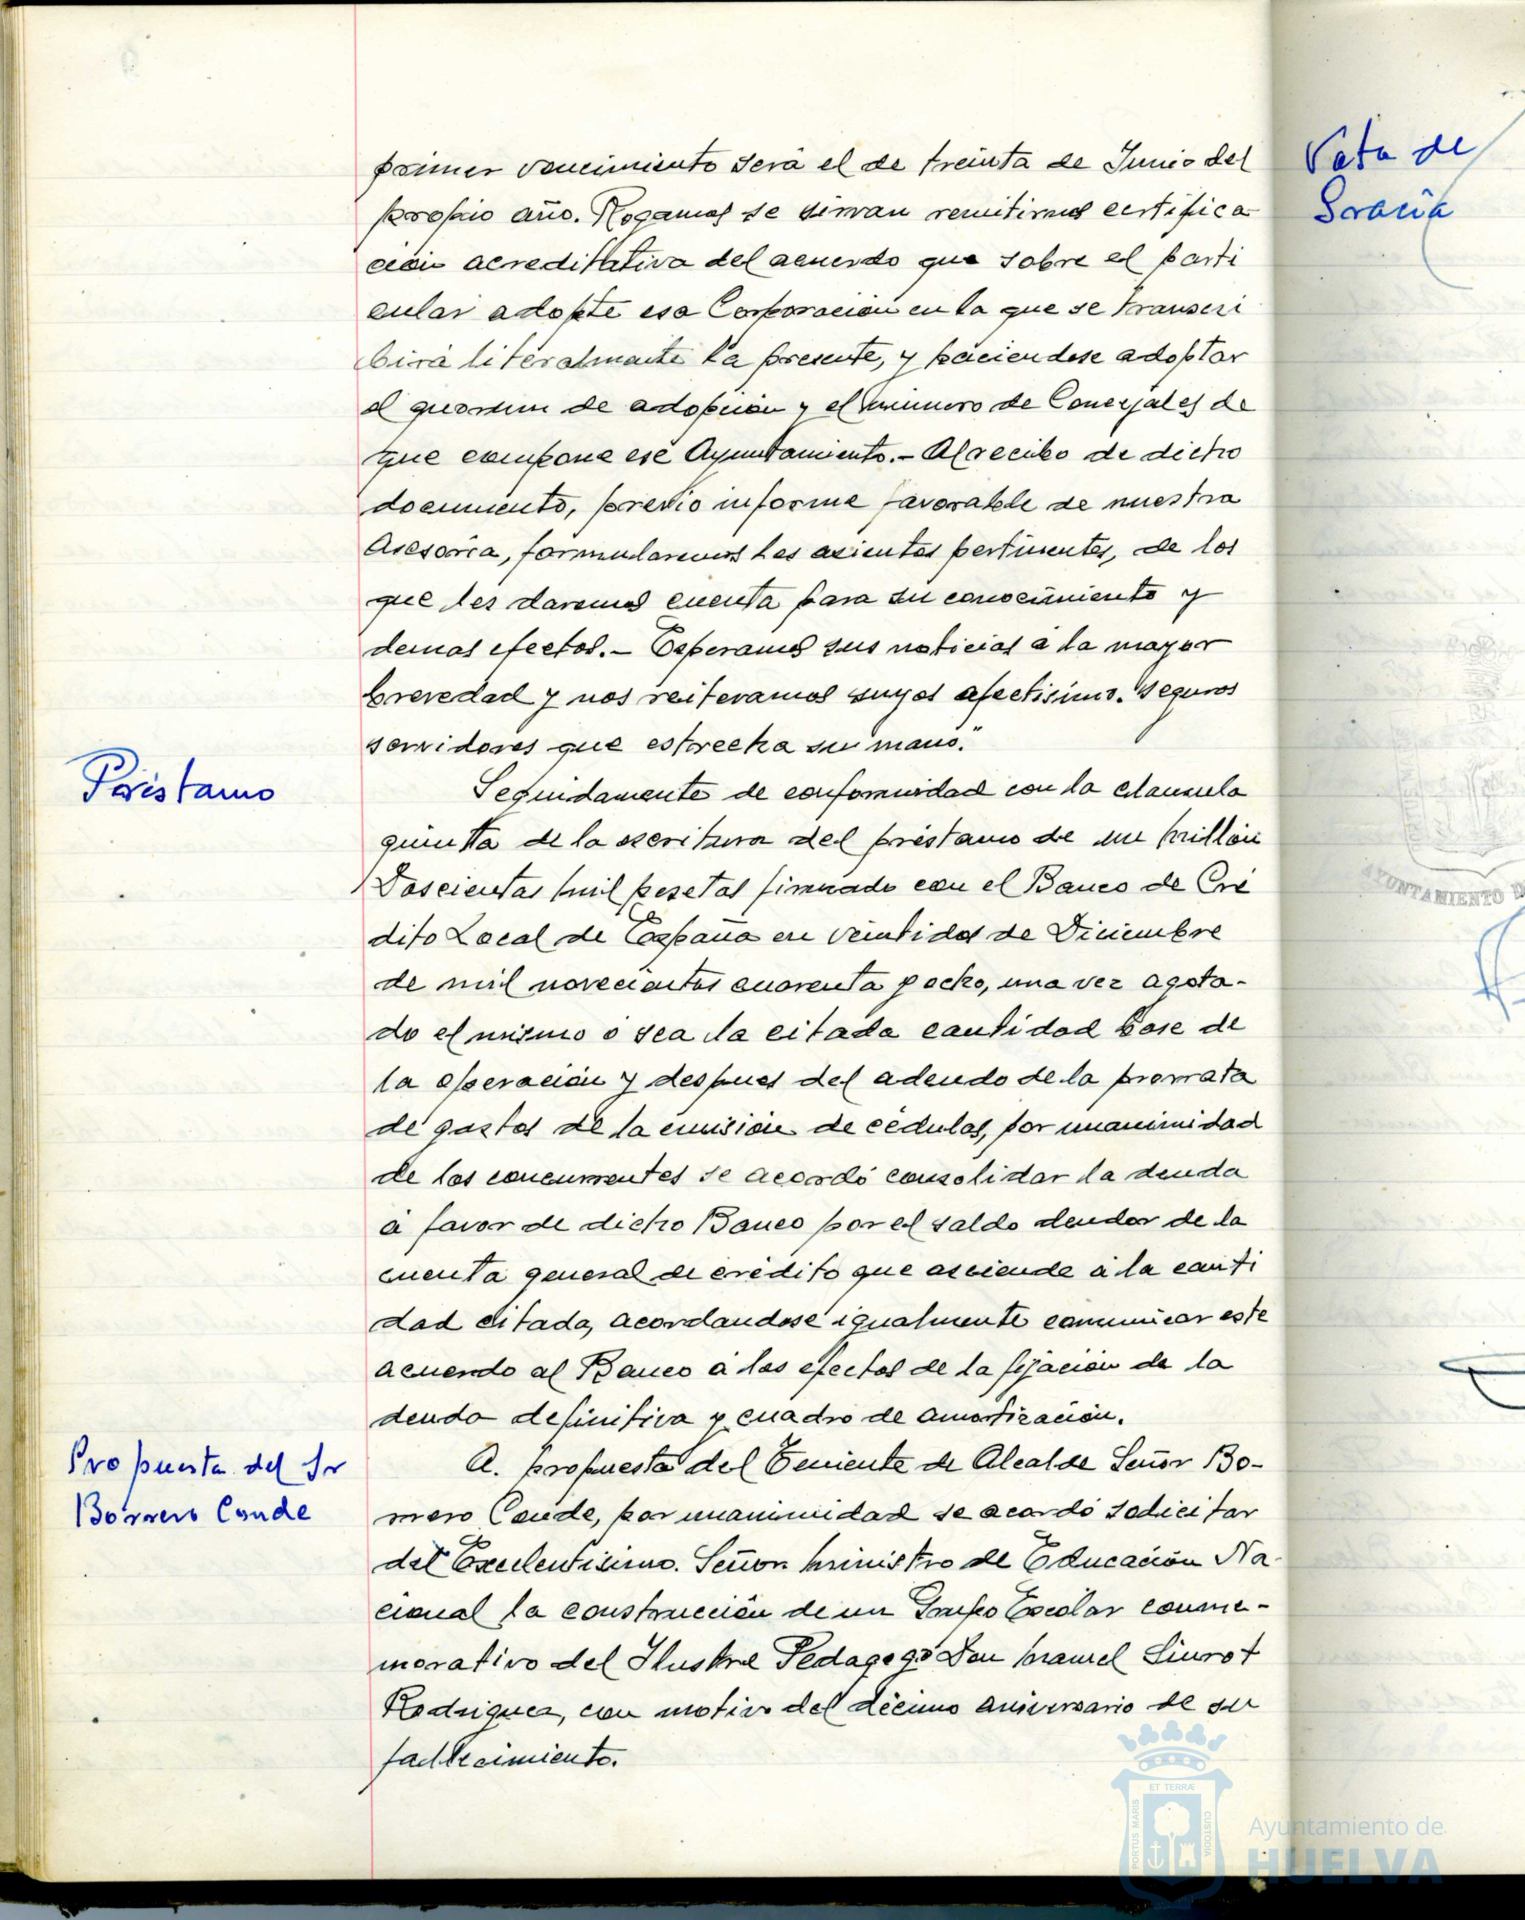 primer vencimiento será el de treinta de Junio del
propio año. Rogamos se sirvan remitirnos certifica-
ción acreditativa del acuerdo que sobre el parti
cular adopte esa Corporación en la que se transcri
birá literalmente la presente, y haciendose adoptar
el quorum de adopción y el número de Concejales de
que compone ese Ayuntamiento.- Al recibo de dicho
documento, previo informe favorable de nuestra
Asesoría, formularemos los asientos pertinentes, de los
que les daremos cuenta para su conocimiento y
demas efectos.- Esperamos sus noticias a la mayor
brevedad y nos reiteramos suyos afectisimo. seguros
servidores que estrecha su mano."
Préstamo
Seguidamente de conformidad con la clausula
quinta de la escritura del préstamo de un millón
Doscientas mil pesetas firmado con el Banco de Cré
dito Local de España en veintidos de Diciembre
de mil novecientos cuarenta y ocho, una vez agota-
do el mismo o sea la citada cantidad base de
la operación y despues del adeudo de la prorrata
de gastos de la emisión de cédulas, por unanimidad
de los concurrentes se acordó consolidar la deuda
á favor de dicho Banco por el saldo deudor de la
cuenta general de crédito que asciende a la canti
dad citada, acordandose igualmente comunicar este
acuerdo al Banco a los efectos de la fijación de la
deuda definitiva y cuadro de amortización.
Propuesta del Sr
Borrero Conde
A. propuesta del Teniente de Alcalde Señor Bo-
rrero Conde, por unanimidad se acordó solicitar
del Excelentisimo. Señor Ministro de Educación Na-
cional la construcción de un Grupo Escolar conme-
morativo del Ilustre Pedagogo Don Manuel Siurot
Rodriguez, con motivo del décimo aniversario de su
fallecimiento.
Vota de
Gracia
AYUNTAMIENTO D
ET TERRÆ
PORTUS MARIS
CUSTODIA
Ayuntamiento de
HUELVA